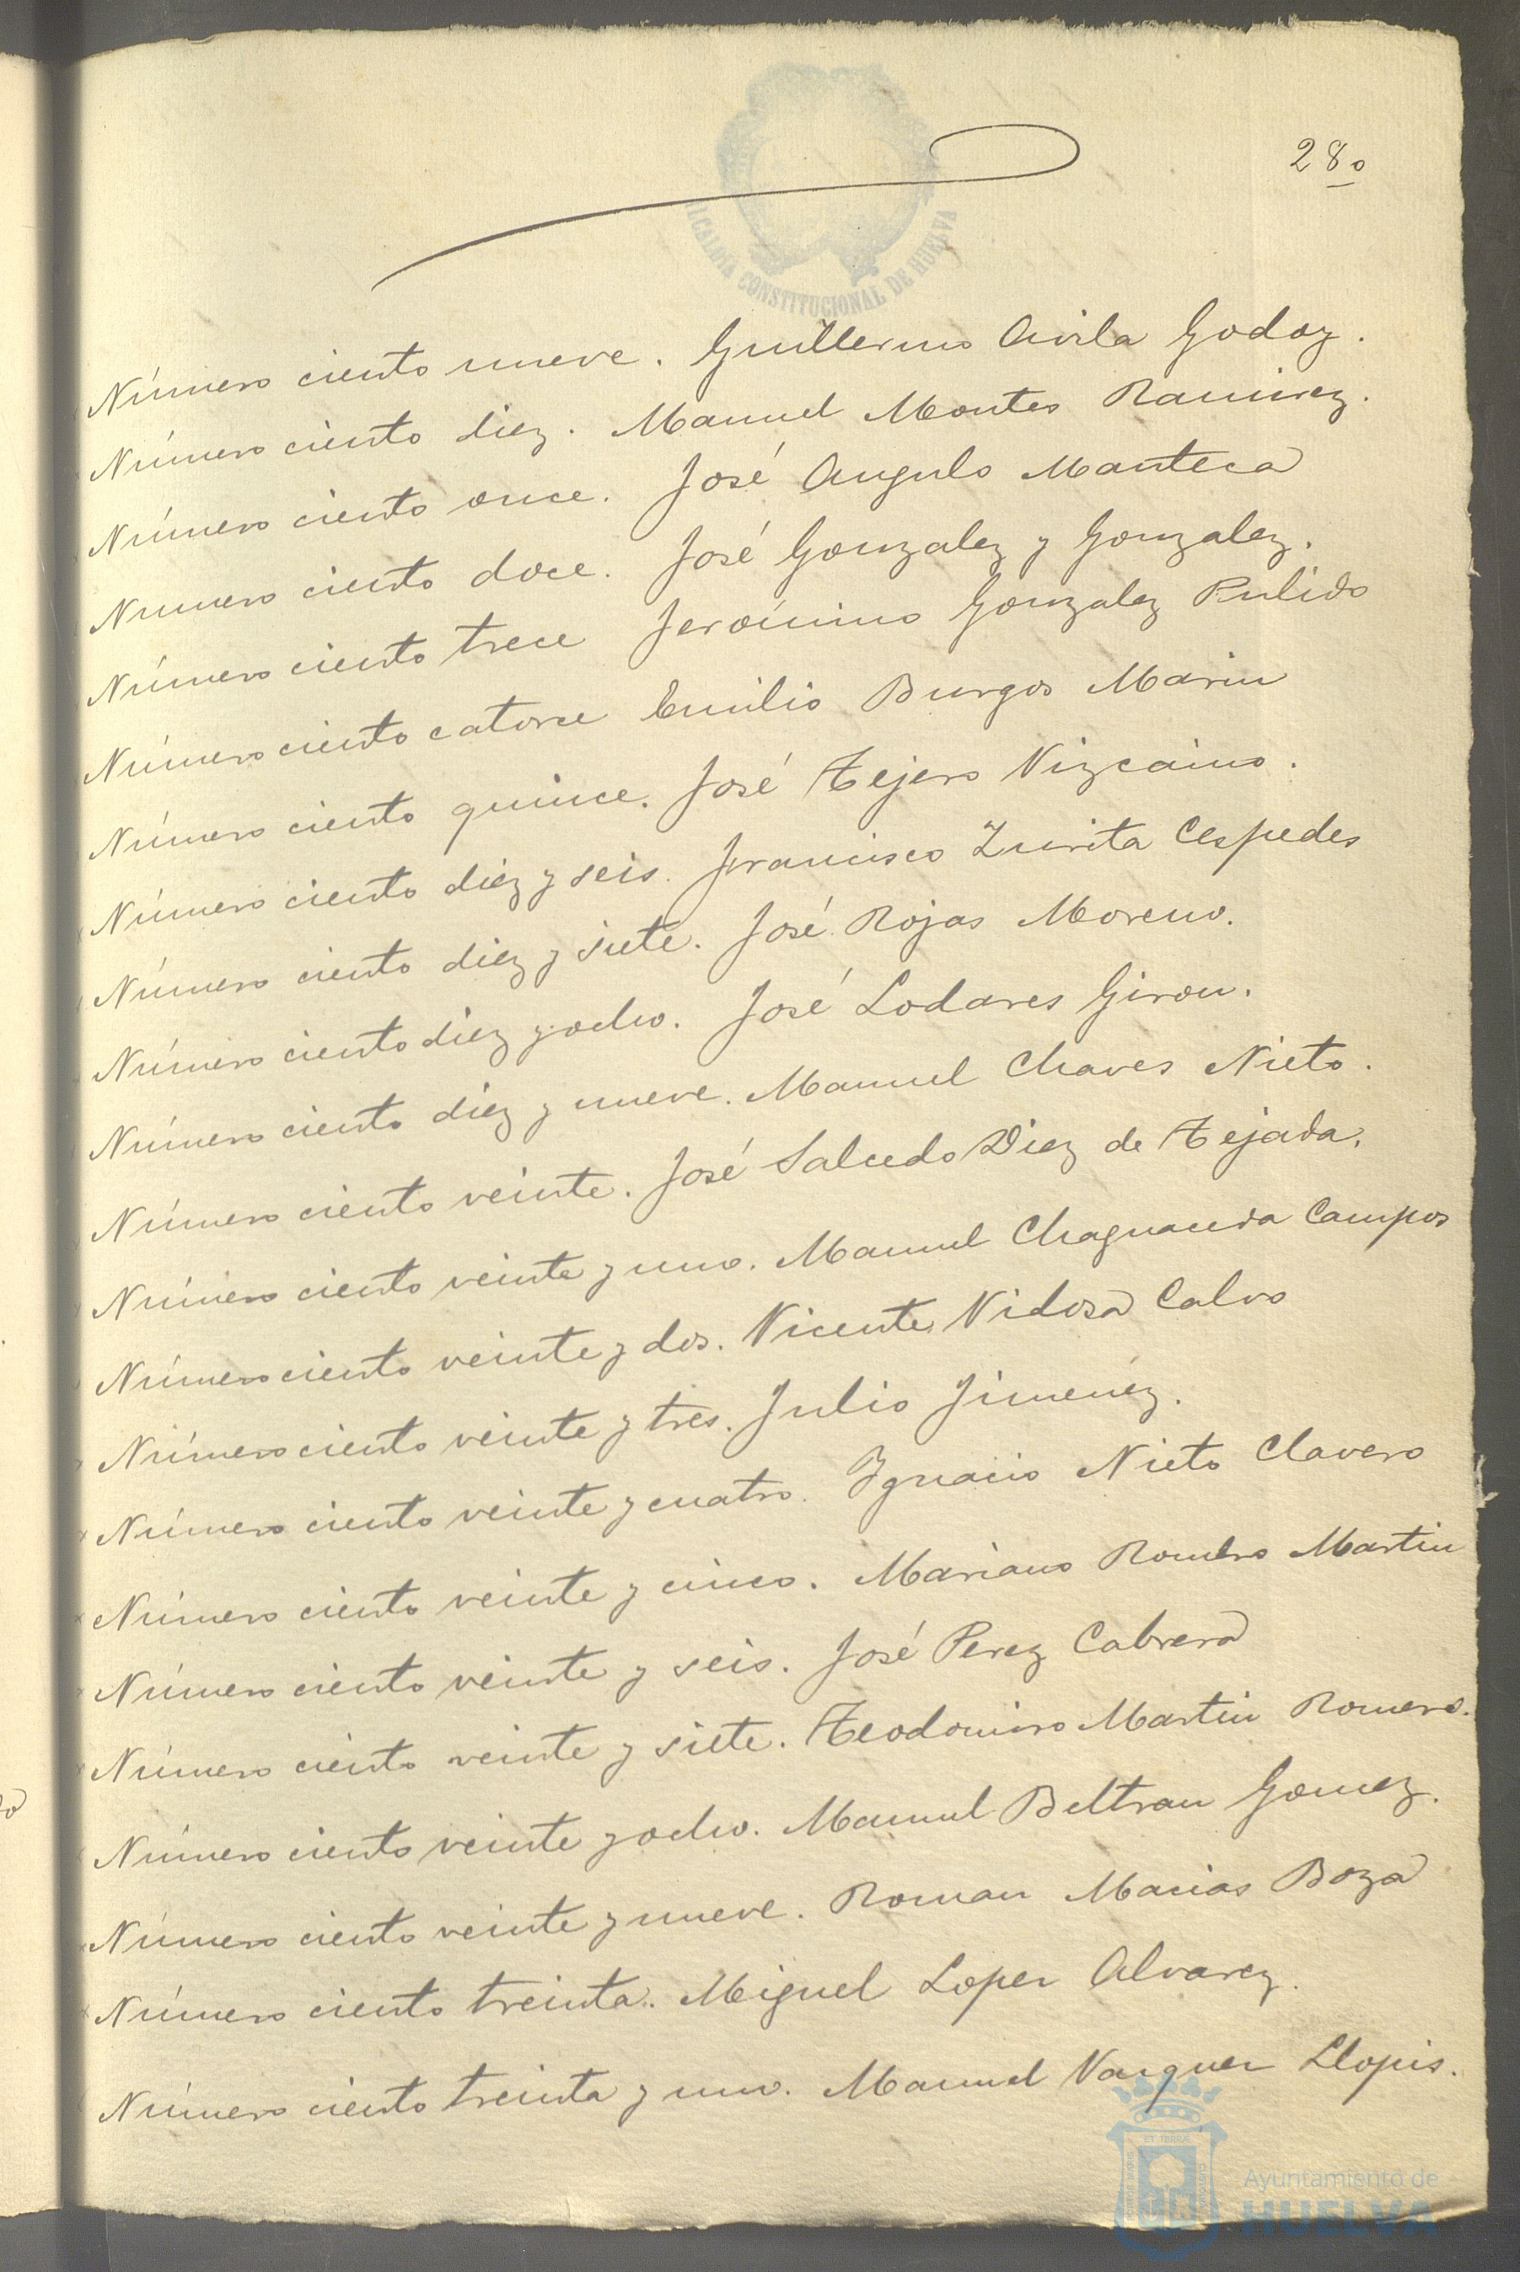 28o
ALCALDÍA CONSTITUCIONAL DE HUELVA
Número ciento nueve. Guillermo Avila Godoy.
Número ciento diez. Manuel Montes Ramirez.
Número ciento once. José Angulo Manteca
Numero ciento doce. José Gonzalez y Gonzalez.
Número ciento trece Jeronimo Gonzalez Pulido
Número ciento catorce Emilio Burgos Marin
Número ciento quince. José Tejero Vizcaino.
Número ciento diez y seis. Francisco Zurita Cespedes
Número ciento diez y siete. José Rojas Moreno.
Número ciento diez y ocho. José Lodares Giron.
Número ciento diez y nueve. Manuel Chaves Nieto.
Número ciento veinte. José Salcedo Diez de Tejada.
Número ciento veinte y uno. Manuel Chaguaceda Campos
Número ciento veinte y dos. Vicente Vidosa Calvo
Número ciento veinte y tres. Julio Jimenez.
Número ciento veinte y cuatro. Ignacio Nieto Clavero
Número ciento veinte y cinco. Mariano Romero Martin
Número ciento veinte y seis. José Perez Cabrera
Número ciento veinte y siete. Teodomiro Martin Romero.
Número ciento veinte y ocho. Manuel Beltran Gomez.
Número ciento veinte y nueve. Roman Macias Boza
Número ciento treinta. Miguel Loper Alvarez.
Número ciento treinta y uno. Manuel Varquer Llopis.
Ayuntamiento de
HUELVA